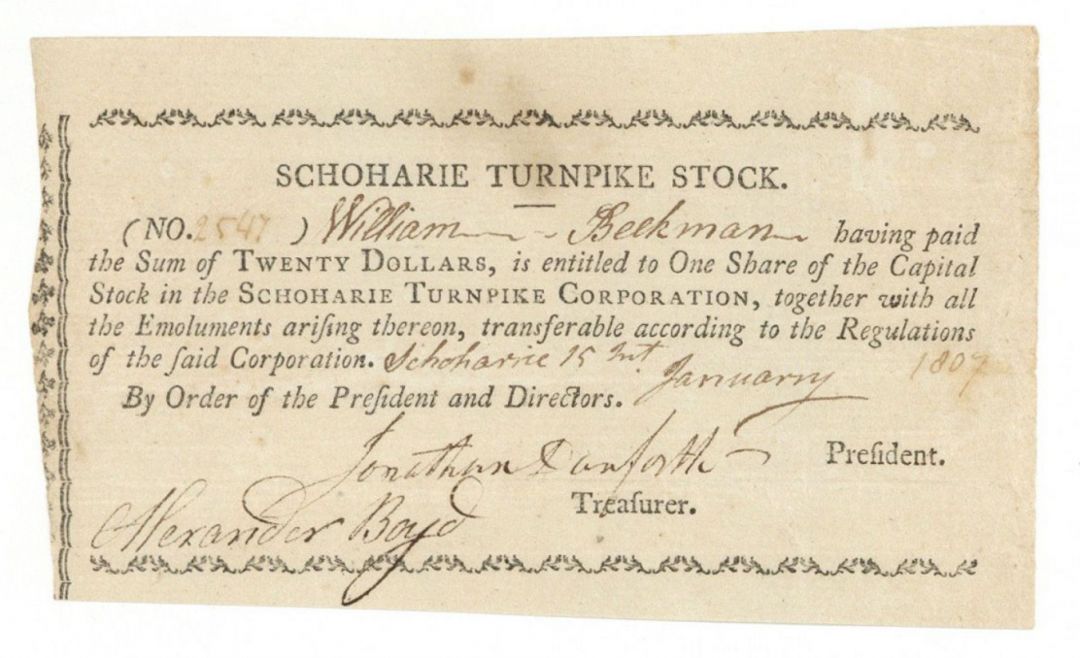 SCHOHARIE TURNPIKE STOCK.
(NO. 2547 ) William Beekman having paid
the Sum of TWENTY DOLLARS, is entitled to One Share of the Capital
Stock in the SCHOHARIE TURNPIKE CORPORATION, together with all
the Emoluments ariſing thereon, transferable according to the Regulations
of the ſaid Corporation. Schoharie 15 January 1807
By Order of the Preſident and Directors.
Jonathan Danforth Preſident.
Treaſurer.
Alexander Boyd